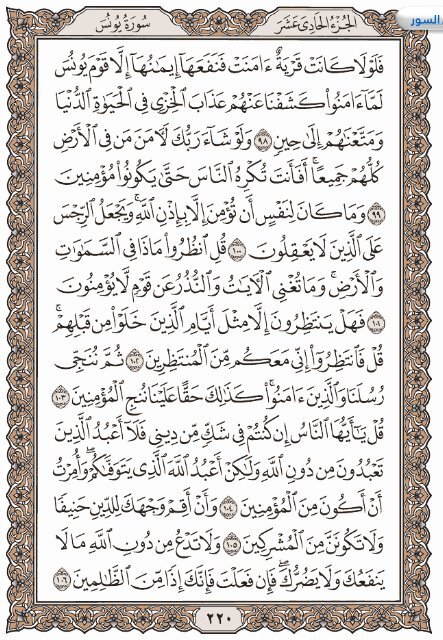 السور
الجزء الحادي عشر
سورة يونس
فَلَوْلَا كَانَتْ قَرْيَةٌ ءَامَنَتْ فَنَفَعَهَآ إِيمَٰنُهَآ إِلَّا قَوْمَ يُونُسَ
لَمَّآ ءَامَنُوا۟ كَشَفْنَا عَنْهُمْ عَذَابَ ٱلْخِزْىِ فِى ٱلْحَيَوٰةِ ٱلدُّنْيَا
وَمَتَّعْنَٰهُمْ إِلَىٰ حِينٍ ٩٨ وَلَوْ شَآءَ رَبُّكَ لَءَامَنَ مَن فِى ٱلْأَرْضِ
كُلُّهُمْ جَمِيعًا ۚ أَفَأَنتَ تُكْرِهُ ٱلنَّاسَ حَتَّىٰ يَكُونُوا۟ مُؤْمِنِينَ
٩٩ وَمَا كَانَ لِنَفْسٍ أَن تُؤْمِنَ إِلَّا بِإِذْنِ ٱللَّهِ ۚ وَيَجْعَلُ ٱلرِّجْسَ
عَلَى ٱلَّذِينَ لَا يَعْقِلُونَ ١٠٠ قُلِ ٱنظُرُوا۟ مَاذَا فِى ٱلسَّمَٰوَٰتِ
وَٱلْأَرْضِ ۚ وَمَا تُغْنِى ٱلْءَايَٰتُ وَٱلنُّذُرُ عَن قَوْمٍ لَّا يُؤْمِنُونَ
١٠١ فَهَلْ يَنتَظِرُونَ إِلَّا مِثْلَ أَيَّامِ ٱلَّذِينَ خَلَوْا۟ مِن قَبْلِهِمْ ۚ
قُلْ فَٱنتَظِرُوٓا۟ إِنِّى مَعَكُم مِّنَ ٱلْمُنتَظِرِينَ ١٠٢ ثُمَّ نُنَجِّى
رُسُلَنَا وَٱلَّذِينَ ءَامَنُوا۟ ۚ كَذَٰلِكَ حَقًّا عَلَيْنَا نُنجِ ٱلْمُؤْمِنِينَ ١٠٣
قُلْ يَٰٓأَيُّهَا ٱلنَّاسُ إِن كُنتُمْ فِى شَكٍّ مِّن دِينِى فَلَآ أَعْبُدُ ٱلَّذِينَ
تَعْبُدُونَ مِن دُونِ ٱللَّهِ وَلَٰكِنْ أَعْبُدُ ٱللَّهَ ٱلَّذِى يَتَوَفَّىٰكُمْ ۖ وَأُمِرْتُ
أَنْ أَكُونَ مِنَ ٱلْمُؤْمِنِينَ ١٠٤ وَأَنْ أَقِمْ وَجْهَكَ لِلدِّينِ حَنِيفًا
وَلَا تَكُونَنَّ مِنَ ٱلْمُشْرِكِينَ ١٠٥ وَلَا تَدْعُ مِن دُونِ ٱللَّهِ مَا لَا
يَنفَعُكَ وَلَا يَضُرُّكَ ۖ فَإِن فَعَلْتَ فَإِنَّكَ إِذًا مِّنَ ٱلظَّٰلِمِينَ ١٠٦
٢٢٠